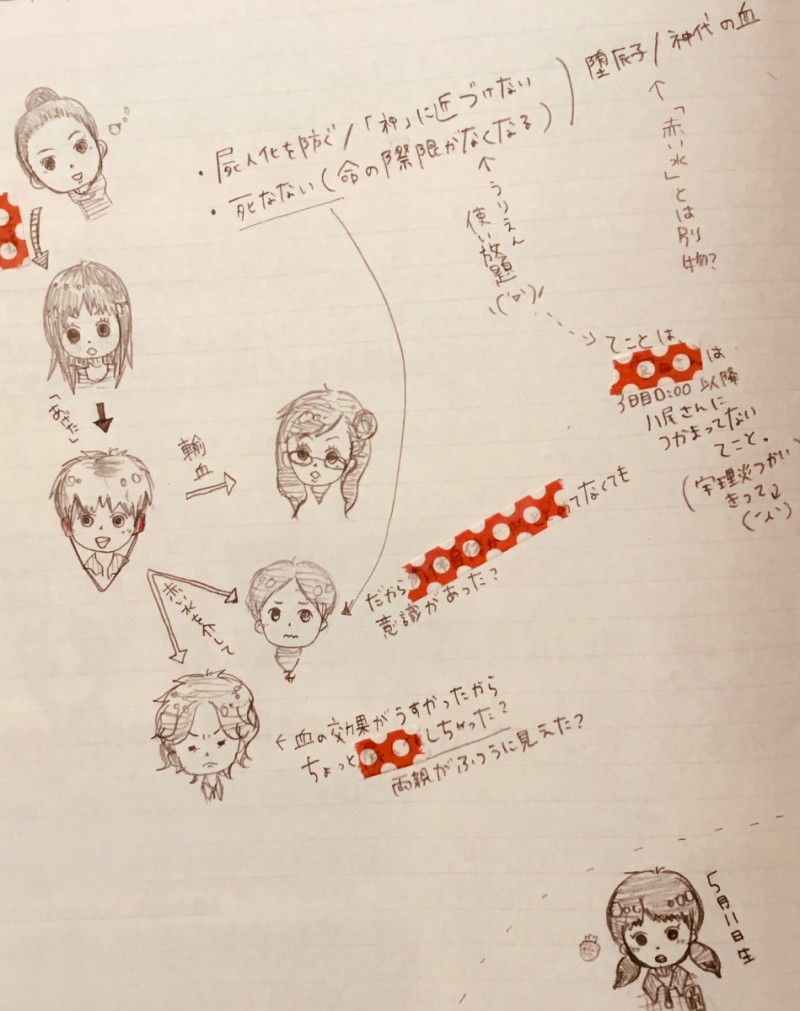 堕辰子/神代の血
・屍人化を防ぐ/「神」に近づけない
・死なない(命の際限がなくなる)
↑「赤い水」とは別物?
↑うりえん
使い放題
てことは
は
3日目0:00以降
川尾さんに
つかまってない
てこと。
(宇理炎つかい
きって
「あさだ」
輸血
赤い水を介して
だから
てなくても
意識があった?
←血の効果がうすかったから
ちょっと
しちゃった?
両親がふつうに見えた?
5月11日生